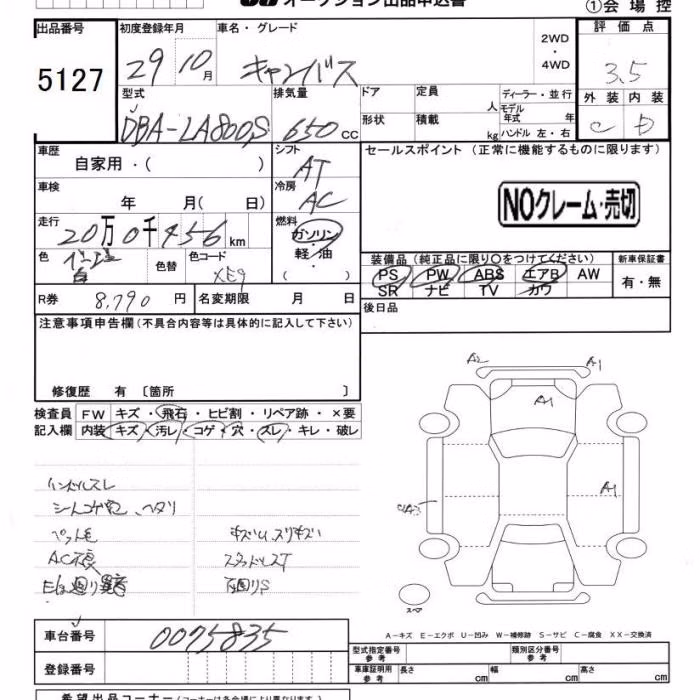 オークション出品申込書 ①会場控
出品番号 初度登録年月 車名・グレード 2WD・4WD 評価点
5127 29 10月 キャンバス 3.5
型式 排気量 ドア 定員 人 ディーラー・並行 外装 内装
DBA-LA800S 650cc 形状 積載 kg モデル年式 年 C D
ハンドル 左・右
車歴 自家用・( ) シフト AT セールスポイント (正常に機能するものに限ります)
車検 年 月( 日) 冷房 AC NOクレーム・売切
走行 20万0千456km 燃料 ガソリン・軽・油・( )
色 白 色替 色コード XE9 装備品 (純正品に限り○をつけてください) 新車保証書
PS PW ABS エアB AW 有・無
SR ナビ TV カワ
R券 8,790円 名変期限 月 日 後日品
注意事項申告欄(不具合内容等は具体的に記入して下さい)
修復歴 有 〔箇所 〕
検査員 FW キズ・飛石・ヒビ割・リペア跡・×要
記入欄 内装 キズ・汚レ・コゲ・穴・スレ・キレ・破レ
A2 A1
A1
A1
ハンドルスレ
シートコゲ穴、ヘタリ
ペット毛 キズU、スリキズ
AC不良 スタッドレスT
下廻りS
スペア
A-キズ E-エクボ U-凹み W-補修跡 S-サビ C-腐食 XX-交換済
車台番号 0075835 型式指定番号 参考 類別区分番号 参考
登録番号 車庫証明用 参考 長さ cm 幅 cm 高さ cm
希望出品コーナー(コーナーは各会場により異なります)